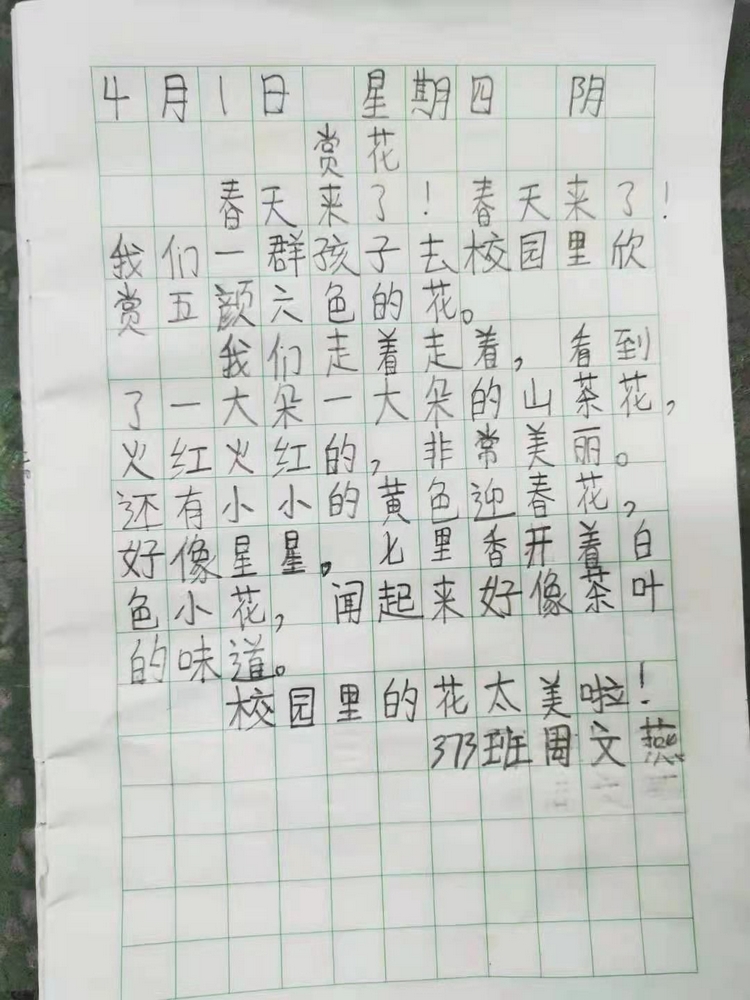 4月1日 星期四 阴
赏花
春天来了！春天来了！
我们一群孩子去校园里欣
赏五颜六色的花。
我们走着走着，看到
了一大朵一大朵的山茶花，
火红火红的，非常美丽。
还有小小的黄色迎春花，
好像星星。七里香开着白
色小花，闻起来好像茶叶
的味道。
校园里的花太美啦！
373班周文燕